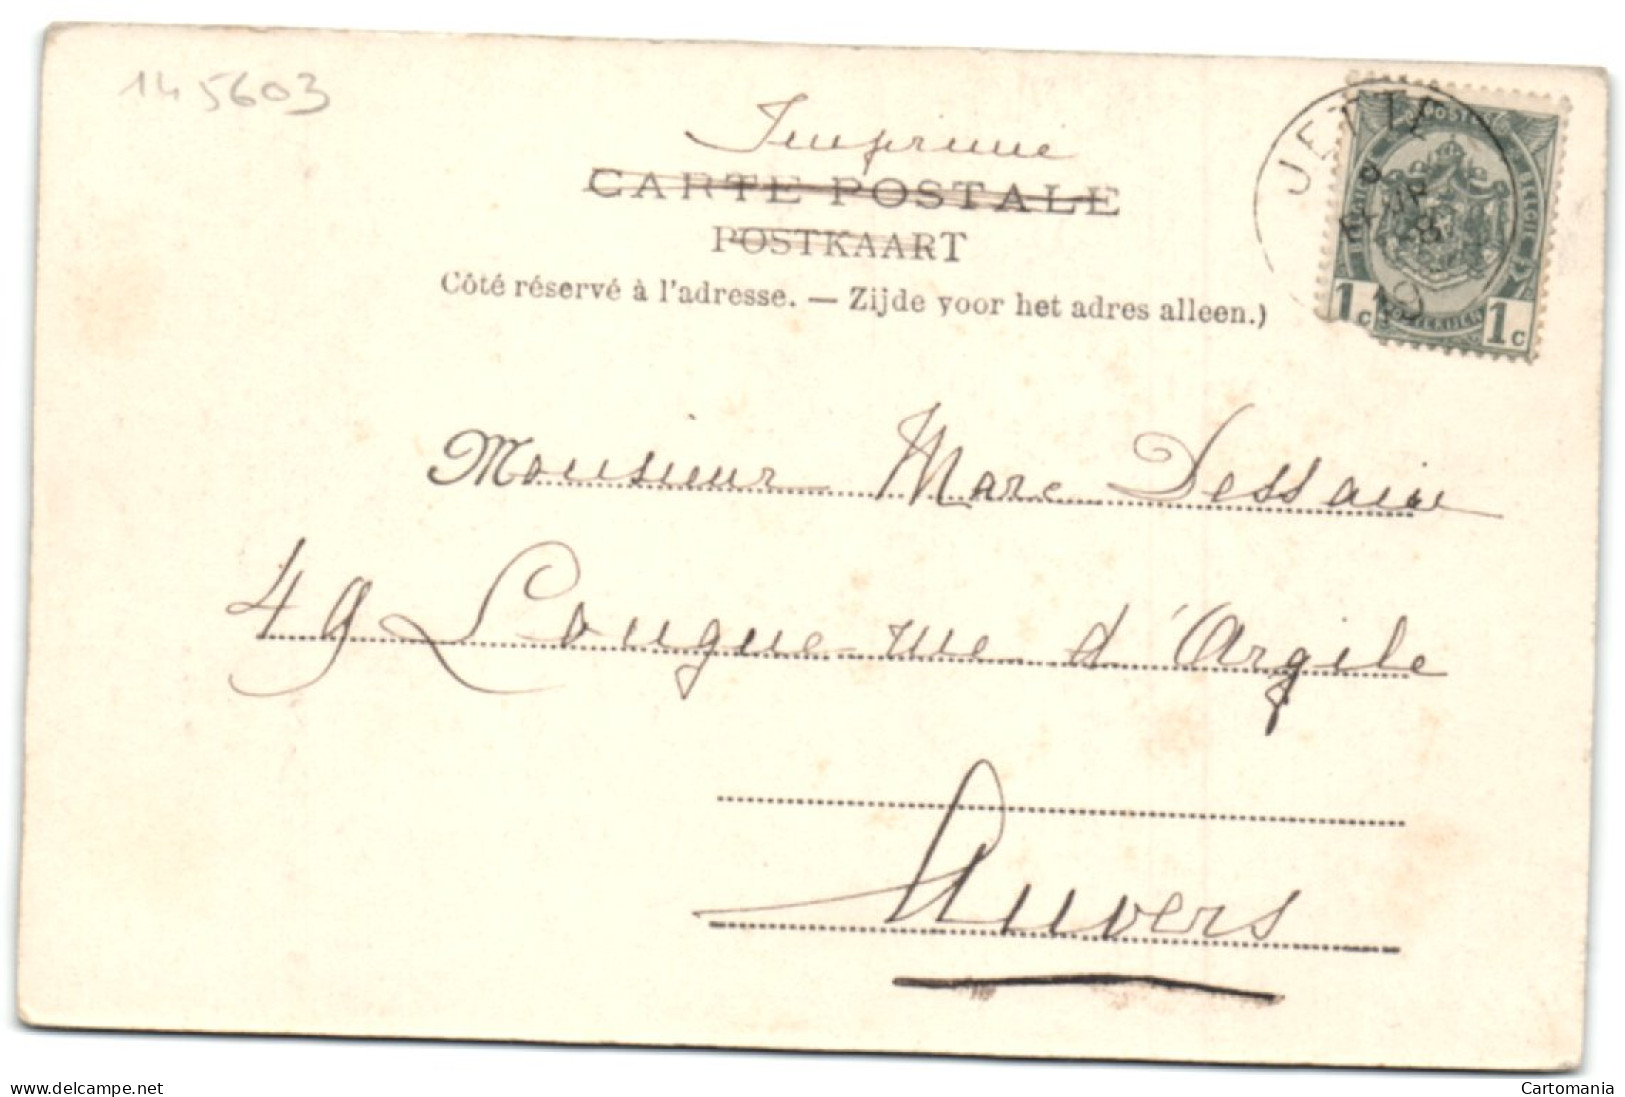 145603
Imprimé
CARTE POSTALE
POSTKAART
Côté réservé à l'adresse. — Zijde voor het adres alleen.)
JETTE
POSTES
BELGIE
1c 1c
Monsieur Marc Dessain
49 Longue rue d'Argile
Anvers
www.delcampe.net
Cartomania